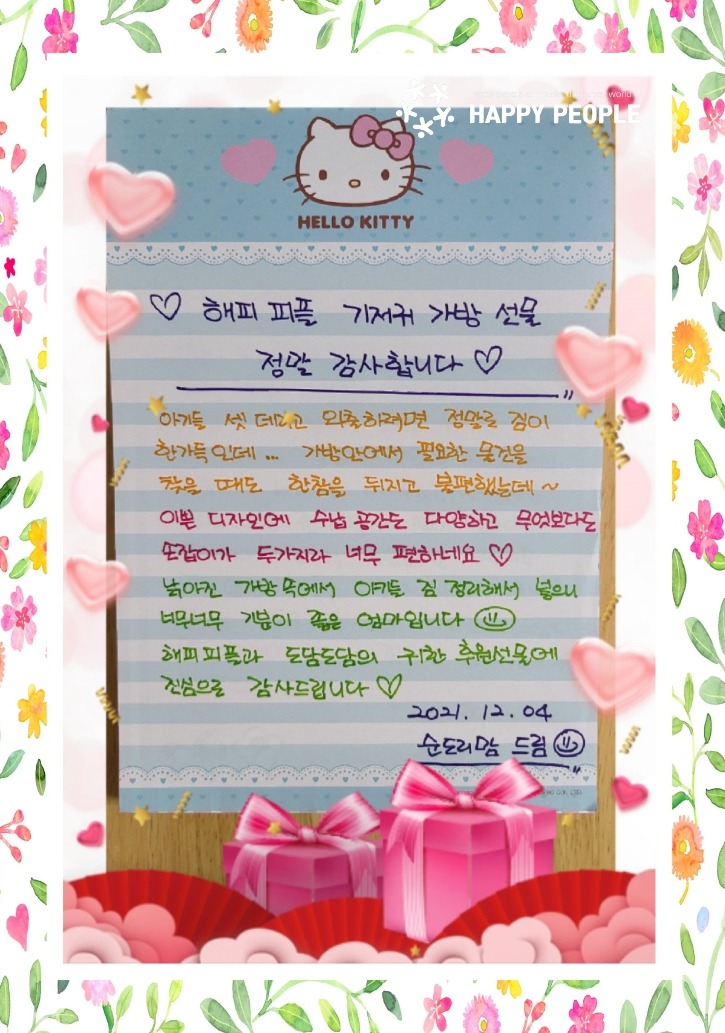 HAPPY PEOPLE
HELLO KITTY
♡ 해피 피플 기저귀 가방 선물
정말 감사합니다 ♡
아가들 셋 데리고 외출하려면 정말로 짐이
한가득인데... 가방안에서 필요한 물건을
찾을 때도 한참을 뒤지고 불편했는데~
이쁜 디자인에 수납 공간도 다양하고 무엇보다도
손잡이가 두가지라 너무 편하네요 ♡
낡아진 가방 속에서 아가들 짐 정리해서 넣으니
너무너무 기분이 좋은 엄마입니다
해피피플과 도담도담의 귀한 후원선물에
진심으로 감사드립니다 ♡
2021. 12. 04
순도리맘 드림